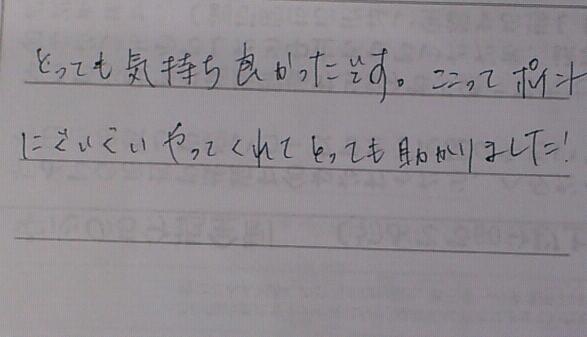 とっても気持ち良かったです。ここってポイント
にぐいぐいやってくれてとっても助かりました!